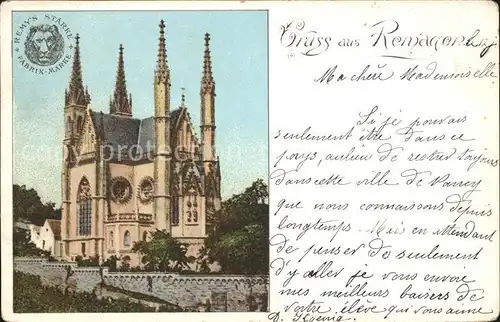 REMY'S STÄRKE
FABRIK-MARKE
Gruss aus Remagen. le
Ma chère Mademoiselle
Si je pouvais
seulement être dans ce
pays, au lieu de restrer toujours
dans cette ville de Nancy
que nous connaissons depuis
longtemps. Mais en attendant
de penser de seulement
d'y aller je vous envoie
mes meilleurs baisers de
votre élève qui vous aime
D.